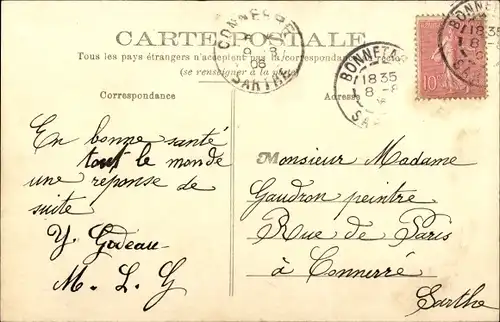 CARTE POSTALE
Tous les pays étrangers n'acceptent pas la correspondance
(se renseigner à la poste)
Correspondance
Adresse
En bonne santé
tout le monde
une réponse de
suite
Y. Godeau
M. L. G
Monsieur Madame
Gaudron peintre
Rue de Paris
à Connerré
Sarthe
CONNERRÉ
SARTHE
BONNETA
18 35
8 - 8
SAR
10
BONNETA
18 35